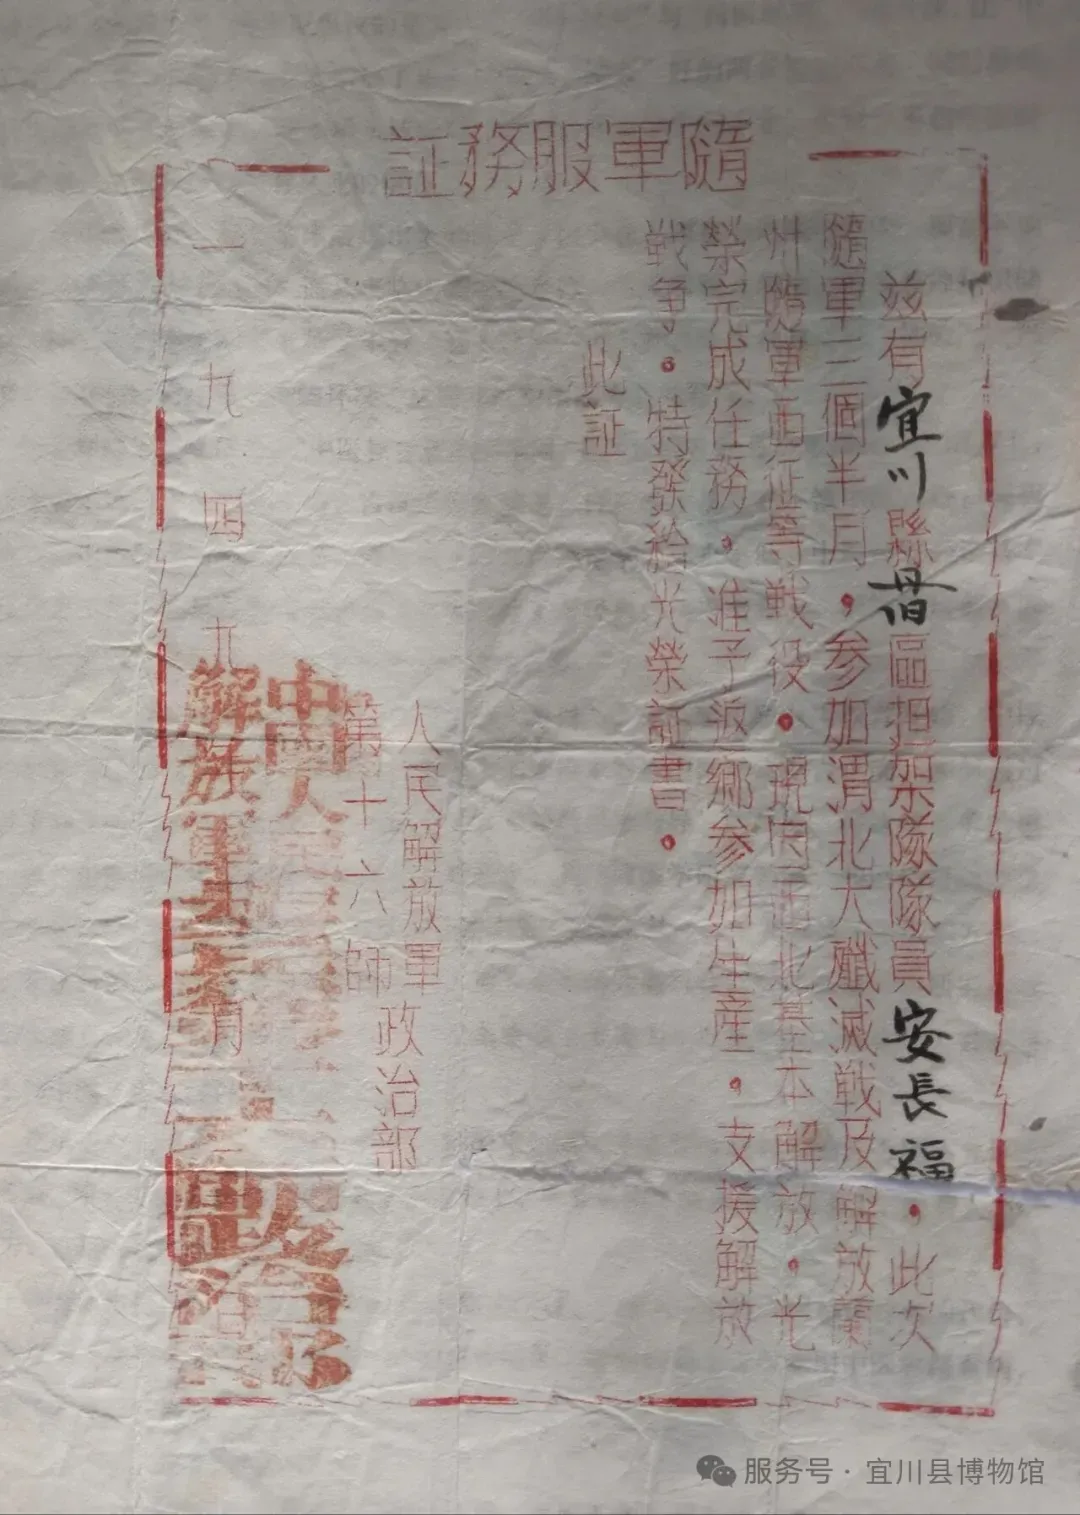 隨軍服務証
兹有宜川縣䀲區担架隊隊員安長福，此次
隨軍三個半月，参加渭北大殲滅戦及解放蘭
州隨軍西征等戦役。現因西北基本解放，光
榮完成任務，准予返鄉参加生産，支援解放
戦争。特發給光榮証書。
此証
人民解放軍
第十六師政治部
一九四九 月
中國人民
解放軍
服务号·宜川县博物馆